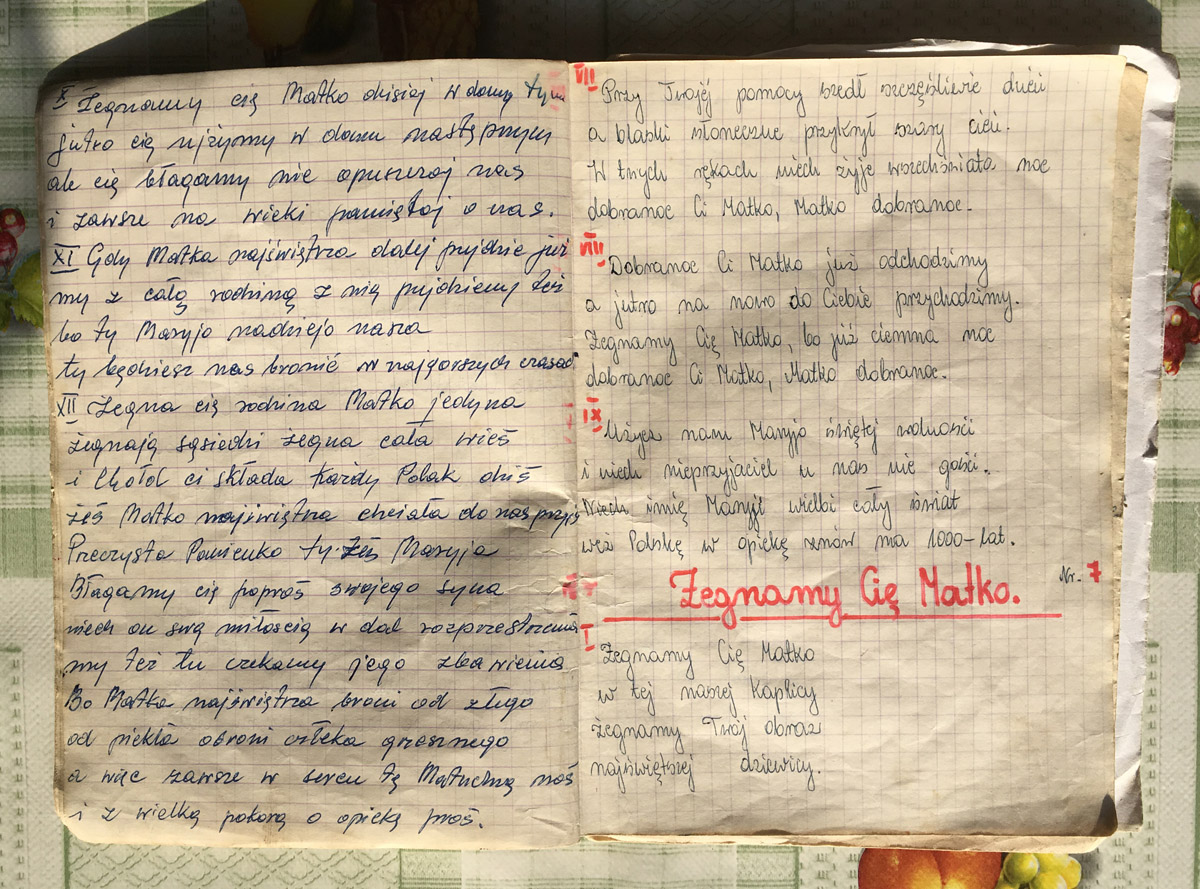 X Żegnamy cię Matko dzisiaj w domu tym
jutro cię ujżymy w domu następnym
ale cię błagamy nie opuszczaj nas
i zawsze na wieki pamiętaj o nas.
XI Gdy Matka najświętrza dalej pujdzie już
my z całą rodziną z nią pujdziemy też
bo ty Maryjo nadziejo nasza
ty będziesz nas bronić w najgorszych czasach
XII Żegna cię rodzina Matko jedyna
żegnają sąsiedzi żegna cała wieś
i Chołd ci składa każdy Polak dziś
żeś Matko najświętrza chciała do nas przyjś
Przeczysta Panienko ty żeś Maryja
Błagamy cię poproś swojego syna
niech on swą miłością w dal rozprzestrzenia
my też tu czekamy jego zbawienia
Bo Matka najświętrza broni od złego
od piekła obroni człeka grzesznego
a więc zawsze w sercu tę Matuchnę noś
i z wielką pokorą o opiekę proś.
VII Przy Twojéj pomocy szedł szczęśliwie dzień
a blaski słoneczne przykrył szary cień.
W twych rękach niech żyje wszechświata noc
dobranoc Ci Matko, Matko dobranoc.
VIII Dobranoc Ci Matko już odchodzimy
a jutro na nowo do Ciebie przychodzimy.
Żegnamy Cię Matko, bo już ciemna noc
dobranoc Ci Matko, Matko dobranoc.
IX Użycz nam Maryjo świętej wolności
i niech nieprzyjaciel u nas nie gości.
Niech imię Maryji wielbi cały świat
weź Polskę w opiekę znów na 1000-lat.
Żegnamy Cię Matko. Nr. 7
I Żegnamy Cię Matko
w tej naszej Kaplicy
żegnamy Twój obraz
najświętszej dziewicy.